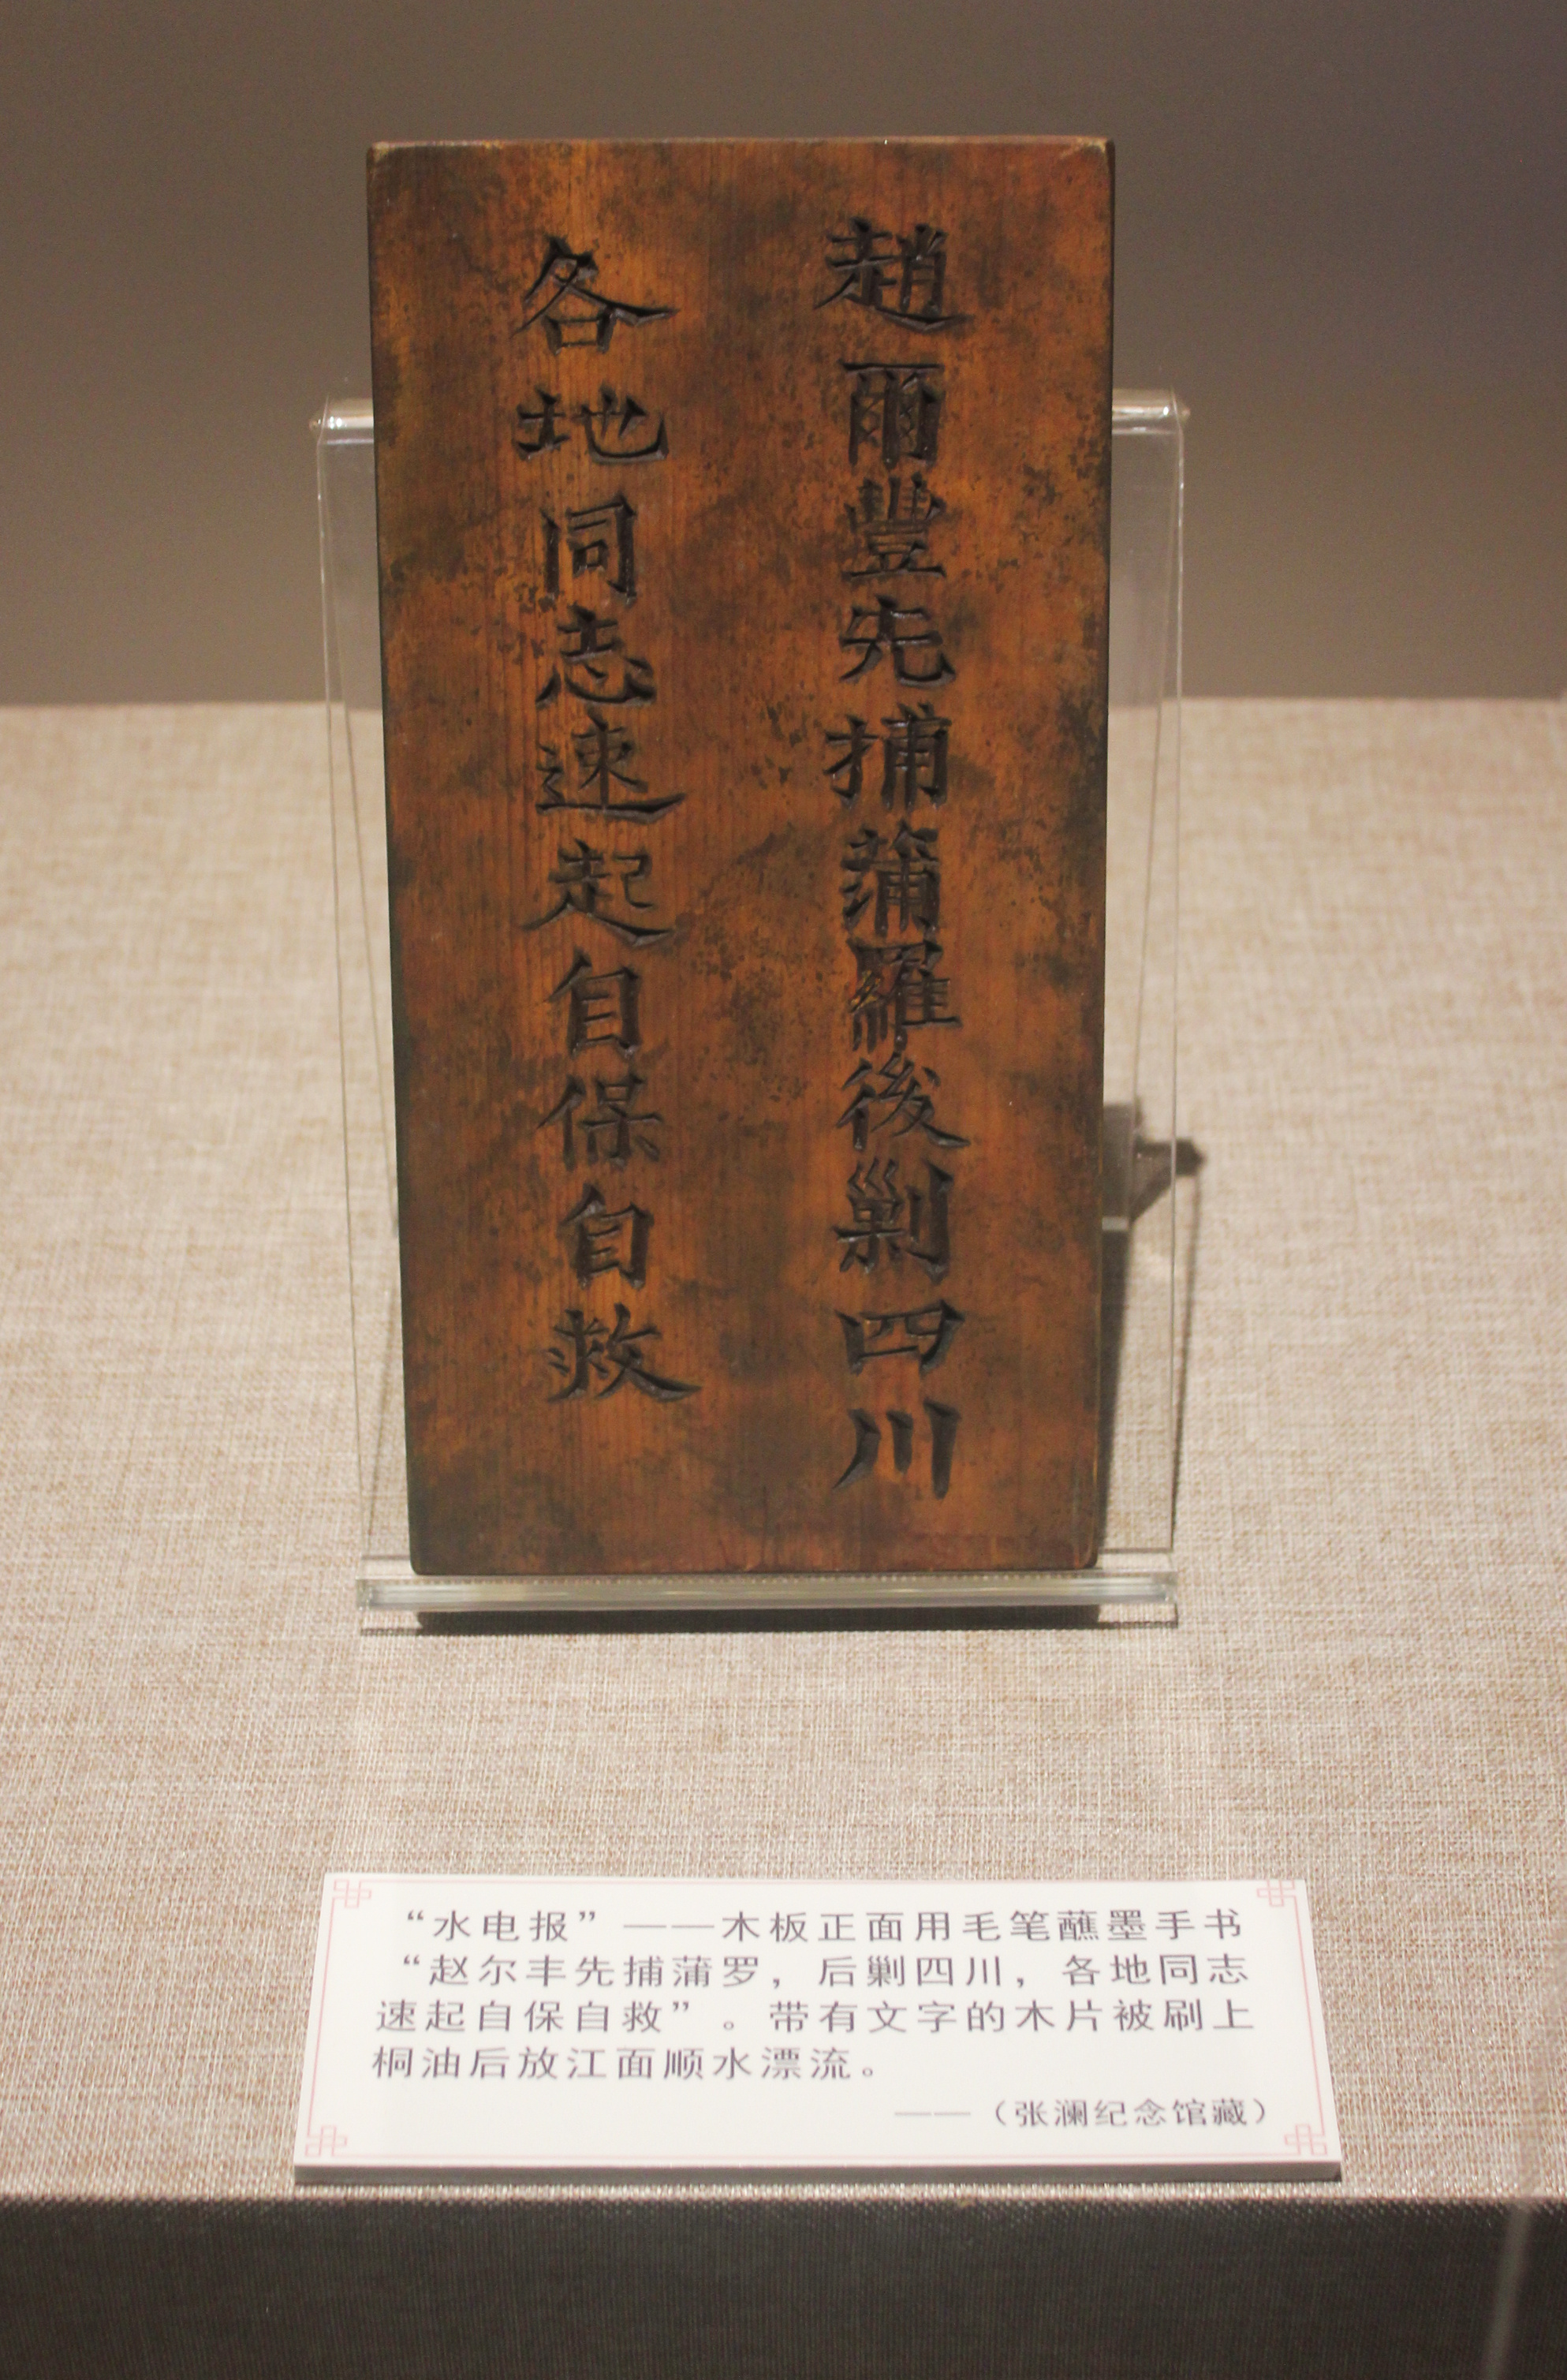 趙爾豐先捕蒲羅後剿四川
各地同志速起自保自救
“水电报”——木板正面用毛笔蘸墨手书
“赵尔丰先捕蒲罗，后剿四川，各地同志
速起自保自救”。带有文字的木片被刷上
桐油后放江面顺水漂流。
——（张澜纪念馆藏）